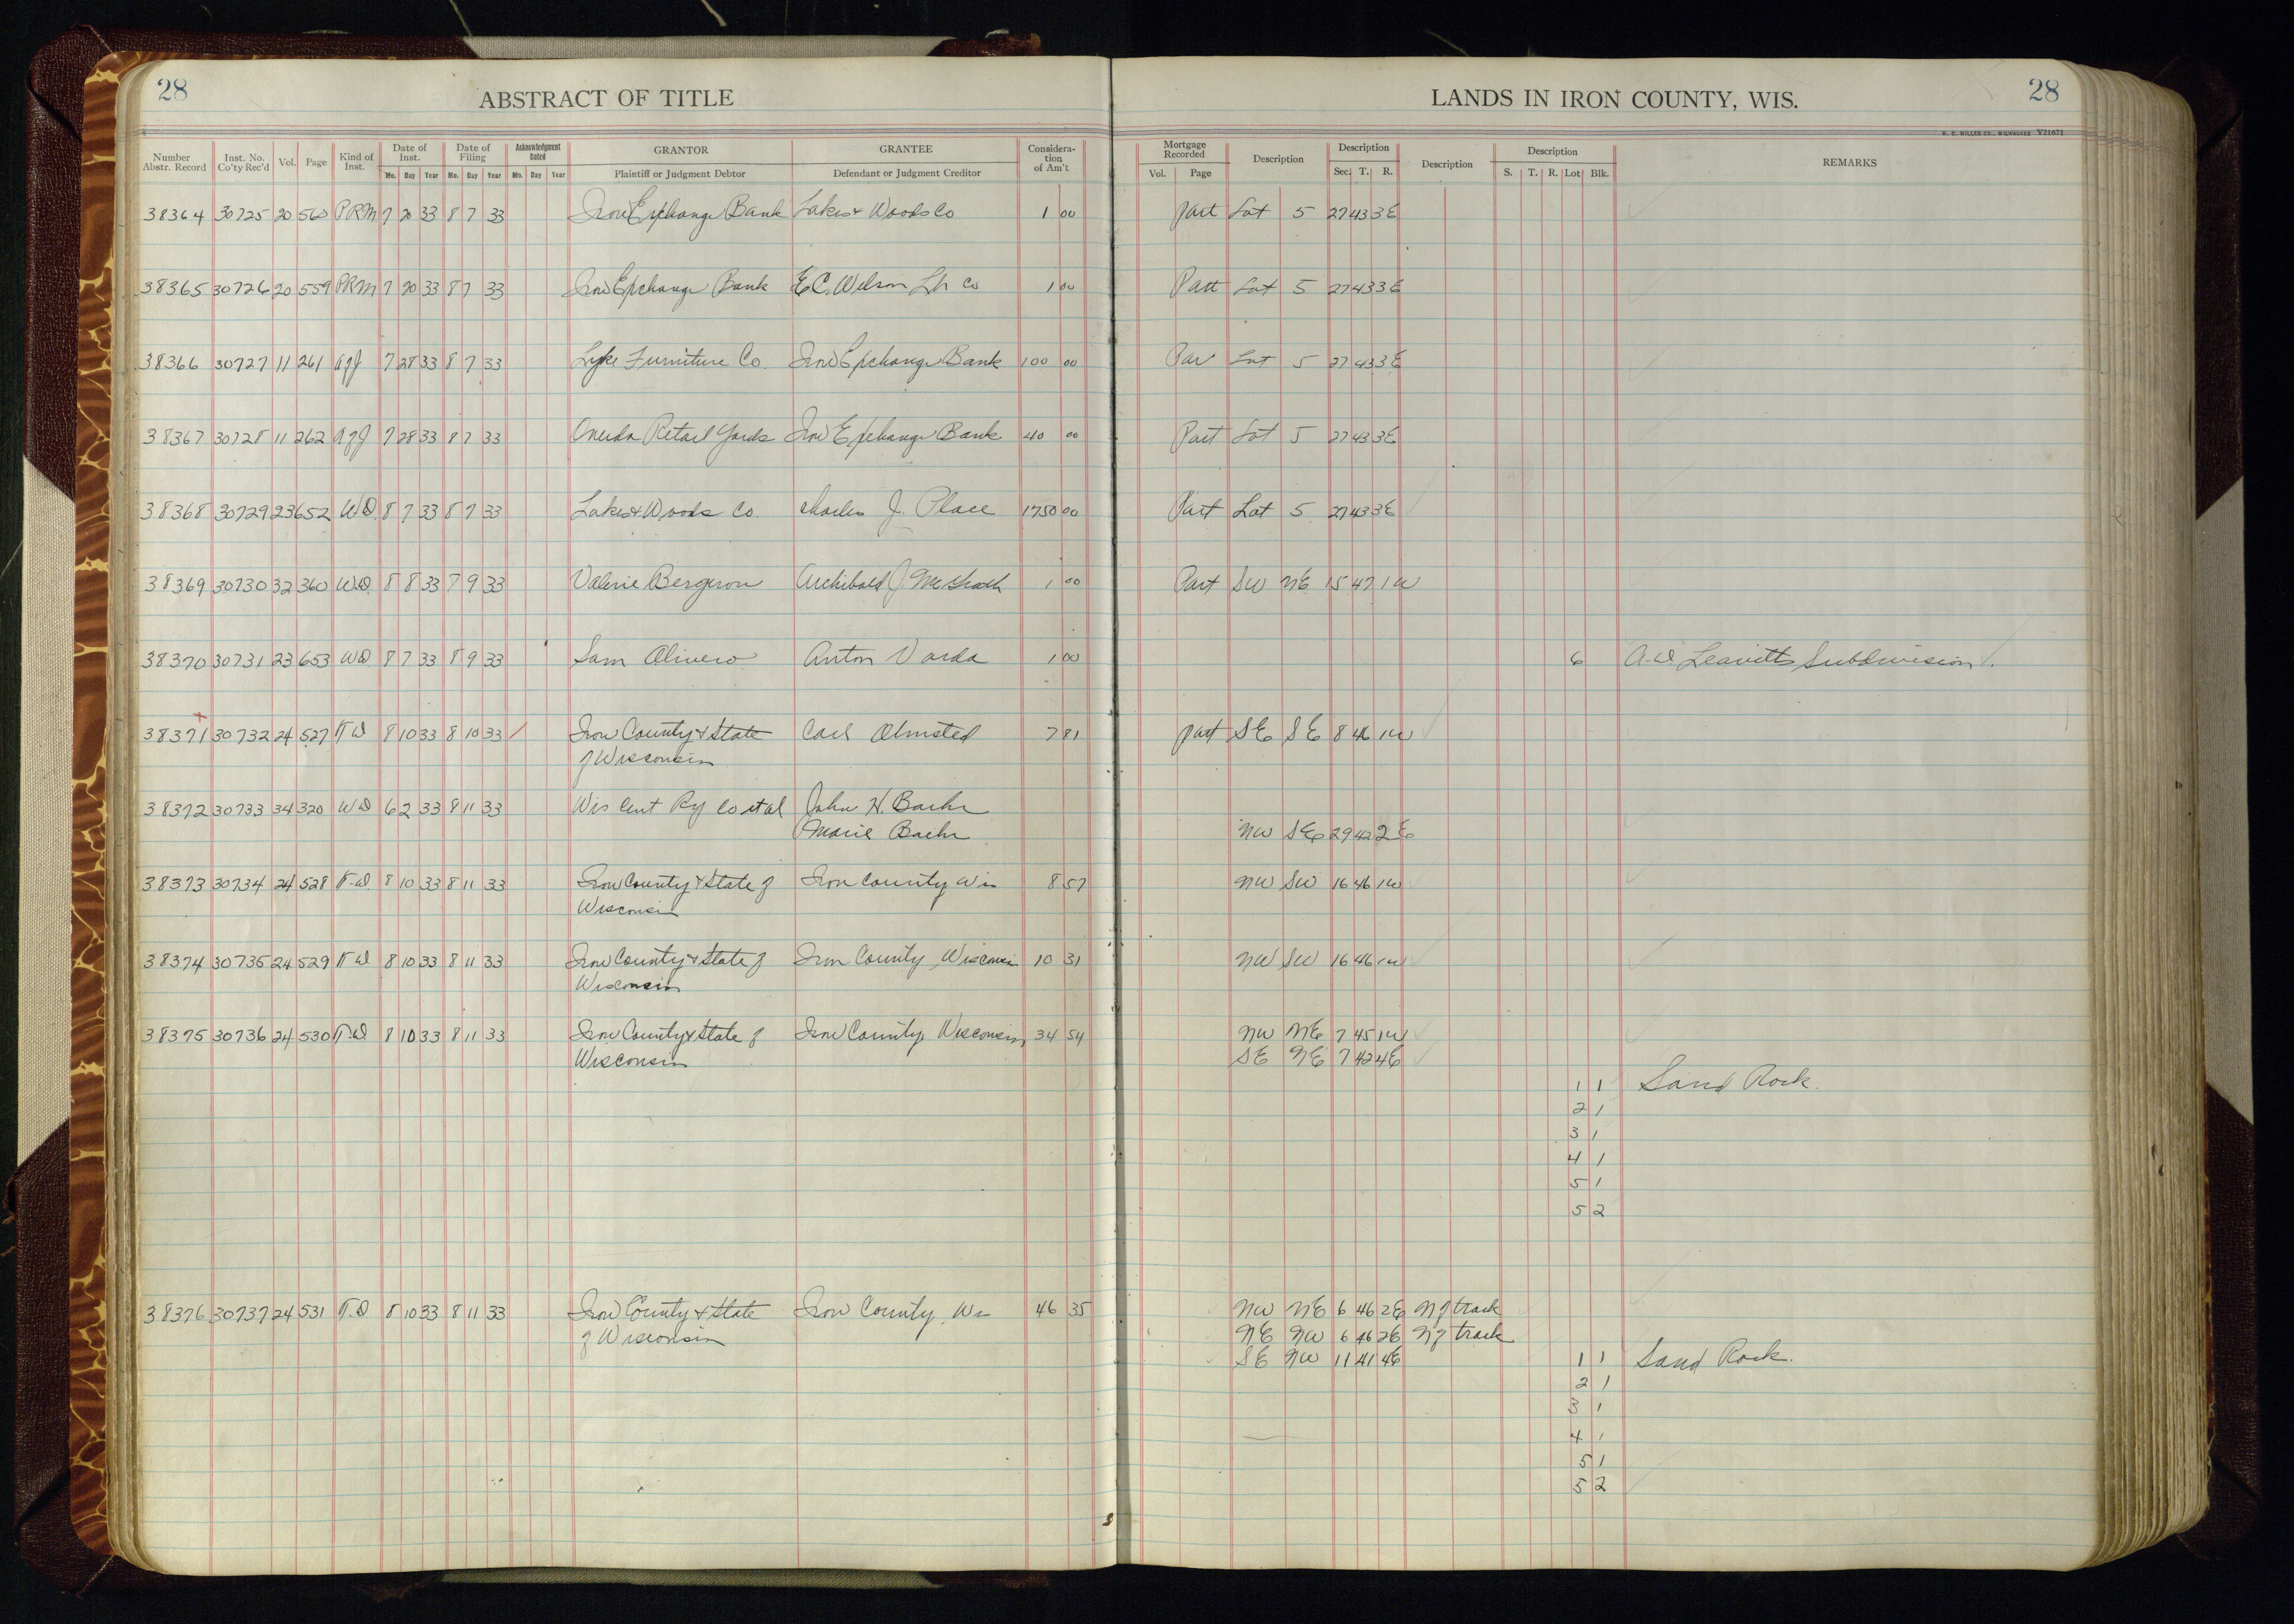 28 ABSTRACT OF TITLE LANDS IN IRON COUNTY, WIS. 28
H. C. MILLER CO., MILWAUKEE V21671
Number Abstr. Record Inst. No. Co'ty Rec'd Vol. Page Kind of Inst. Date of Inst. Mo. Day Year Date of Filing Mo. Day Year Acknowledgment Dated Mo. Day Year GRANTOR Plaintiff or Judgment Debtor GRANTEE Defendant or Judgment Creditor Considera-tion of Am't Mortgage Recorded Vol. Page Description Description Sec. T. R. Description Description S. T. R. Lot Blk. REMARKS
38364 30725 20 560 PRM 7 20 33 8 7 33 Iron Exchange Bank Lakes & Woods Co 1 00 part Lot 5 27 43 3E
38365 30726 20 559 PRM 7 20 33 8 7 33 Iron Exchange Bank E C. Wilson Lbr Co 1 00 Part Lot 5 27 43 3E
38366 30727 11 261 agj 7 28 33 8 7 33 Furniture Co. Iron Exchange Bank 100 00 Par Lot 5 27 43 3E
38367 30728 11 262 agj 7 28 33 8 7 33 Oneida Retail Yards Iron Exchange Bank 40 00 Part Lot 5 27 43 3E
38368 30729 23 652 WD. 8 7 33 8 7 33 Lakes & Woods Co. Charles J. Place 1750 00 Part Lot 5 27 43 3E
38369 30730 32 360 W.D. 8 8 33 8 9 33 Valerie Bergeron Archibald J. McGrath 1 00 Part SW NE 15 47 1W
38370 30731 23 653 WD 8 7 33 8 9 33 Sam Olivero Anton Varda 1 00 6 A.D. Leavitts Subdivision.
38371 30732 24 527 T W 8 10 33 8 10 33 Iron County & State Carl Olmsted 7 81 part SE SE 8 46 1W
of Wisconsin
38372 30733 34 320 WD 6 2 33 8 11 33 Wis Cent Ry Co et al John H. Baehr
Marie Baehr NW SE 29 42 2E
38373 30734 24 528 T-D. 8 10 33 8 11 33 Iron County & State of Iron County Wis 8 57 NW SW 16 46 1W
Wisconsin
38374 30735 24 529 T D 8 10 33 8 11 33 Iron County & State of Iron County, Wisconsin 10 31 NW SW 16 46 1W
Wisconsin
38375 30736 24 530 T.D. 8 10 33 8 11 33 Iron County & State of Iron County, Wisconsin 34 54 NW NE 7 45 1W
Wisconsin SE NE 7 42 4E
1 1 Sand Rock.
2 1
3 1
4 1
5 1
5 2
38376 30737 24 531 T.D 8 10 33 8 11 33 Iron County & State Iron County, Wis 46 35 NW NE 6 46 2E N of track
of Wisconsin NE NW 6 46 2E N of track
SE NW 11 41 4E 1 1 Sand Rock.
2 1
3 1
4 1
5 1
5 2